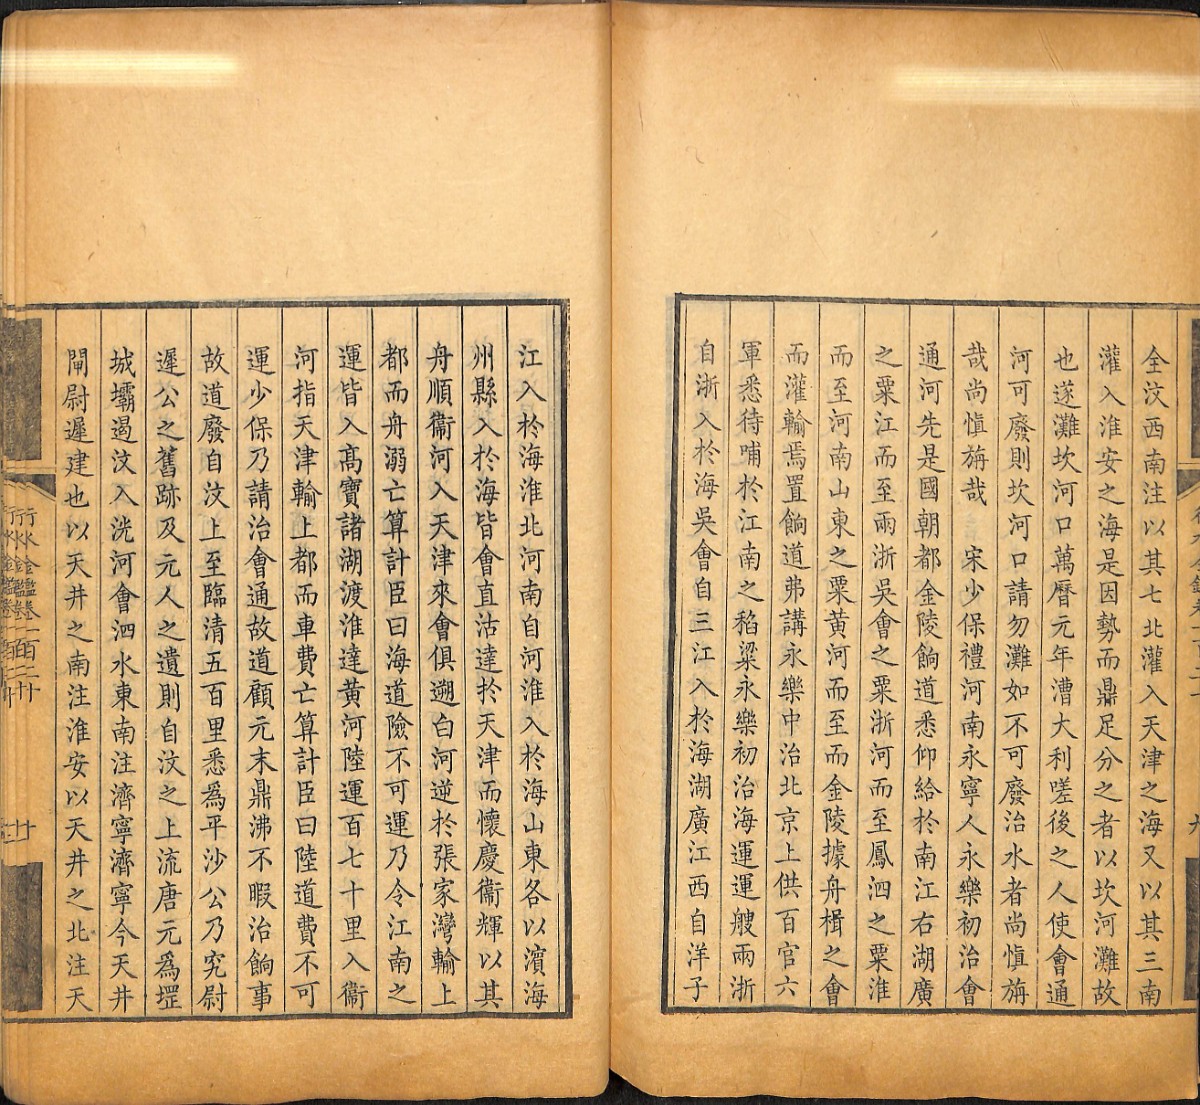 全汶西南注以其七北灌入天津之海又以其三南
灌入淮安之海是因勢而鼎足分之者以坎河灘故
也遂灘坎河口萬曆元年漕大利嗟後之人使會通
河可廢則坎河口請勿灘如不可廢治水者尚慎旃
哉尚慎旃哉 宋少保禮河南永寧人永樂初治會
通河先是國朝都金陵餉道悉仰給於南江右湖廣
之粟江而至兩浙吳會之粟浙河而至鳳泗之粟淮
而至河南山東之粟黄河而至而金陵據舟楫之會
而灌輸焉置餉道弗講永樂中治北京上供百官六
軍悉待哺於江南之稻粱永樂初治海運運艘兩浙
自浙入於海吳會自三江入於海湖廣江西自洋子
江入於海淮北河南自河淮入於海山東各以濱海
州縣入於海皆會直沽達於天津而懷慶衞輝以其
舟順衞河入天津來會俱遡白河逆於張家灣輸上
都而舟溺亡算計臣曰海道險不可運乃令江南之
運皆入高寶諸湖渡淮達黄河陸運百七十里入衞
河指天津輸上都而車費亡算計臣曰陸道費不可
運少保乃請治會通故道顧元末鼎沸不暇治餉事
故道廢自汶上至臨清五百里悉爲平沙公乃究尉
遲公之舊跡及元人之遺則自汶之上流唐元爲堽
城壩遏汶入洸河會泗水東南注濟寧濟寧今天井
閘尉遲建也以天井之南注淮安以天井之北注天
行水金鑑卷一百二十